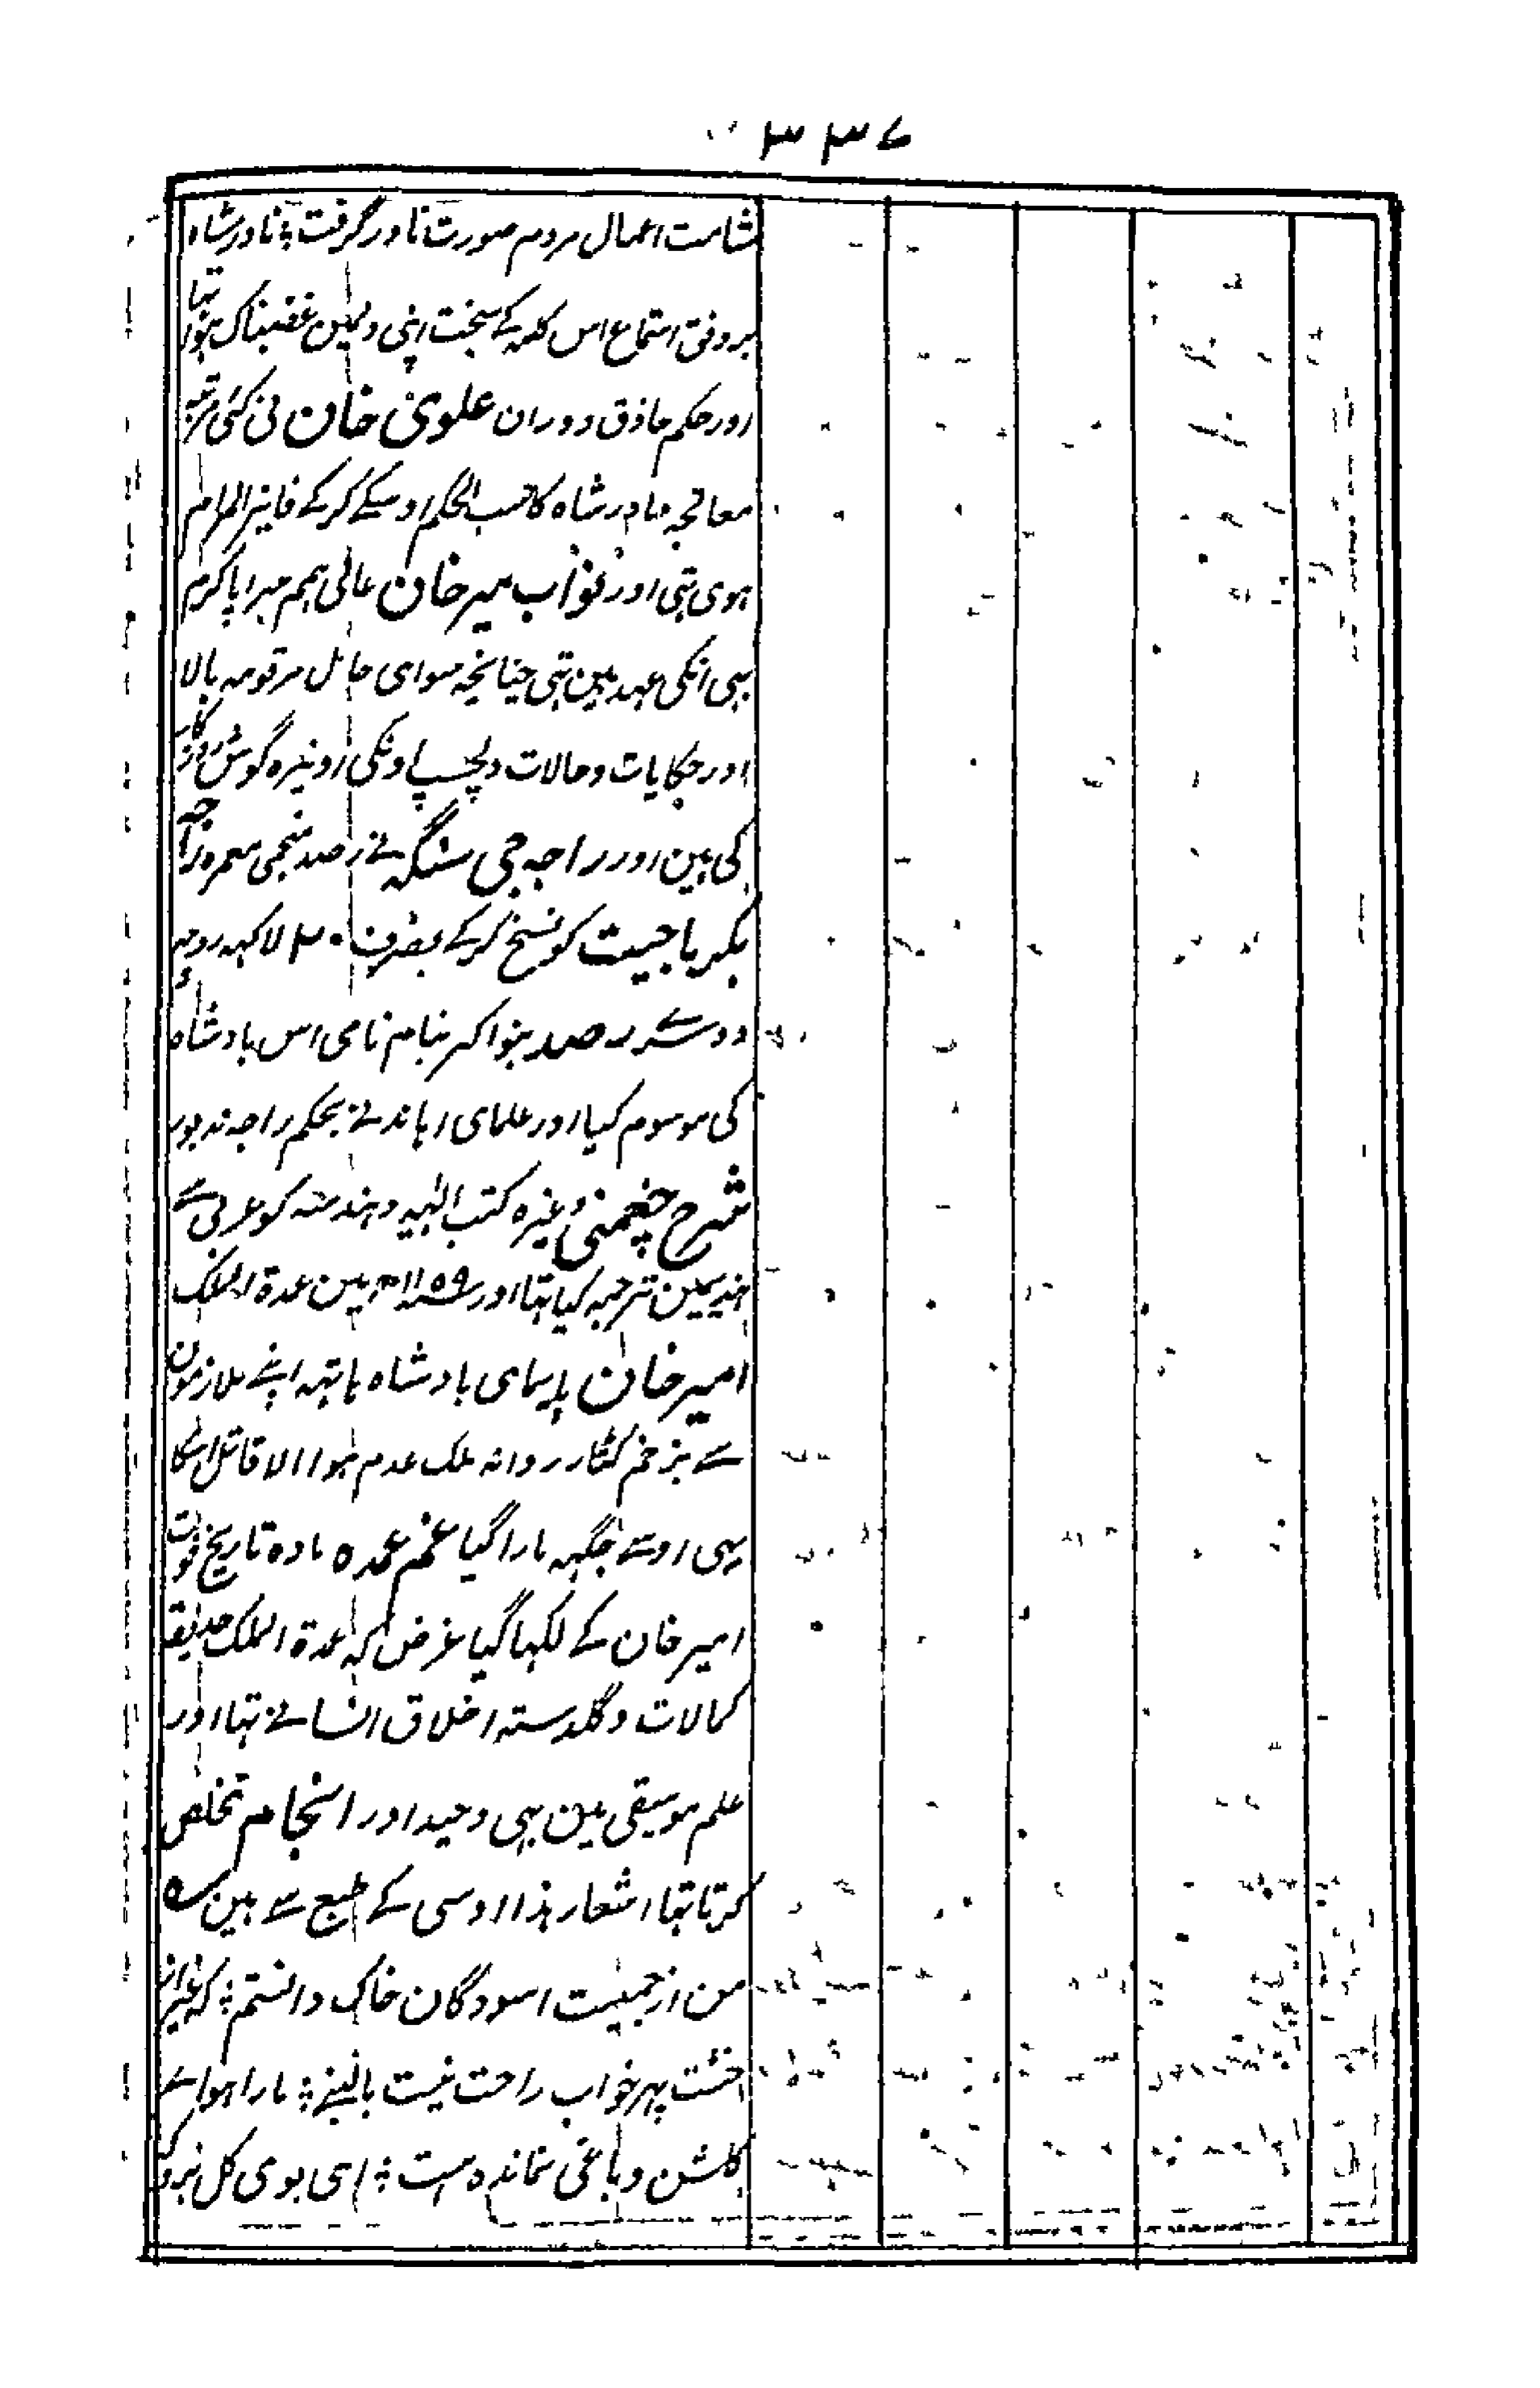 ٣٣٤
شامت اعمال مردم صورت نادر گرفت ؛ نادر شاہ
بروفق استماع اس کلمہ کے سخت اپنی دلمین غضبناک ہوا تہا
اور حکیم حاذق دوران علوی خان نی کئی مرتبہ
معالجہ نادر شاہ کا حسب الحکم اوسکے کرکے فایز المرام
ہوی تہی اور نواب میر خان عالی ہمم سراپا کرم
بہی انکی عہد مین تہی چنانچہ سوای حال مرقومہ بالا
اور حکایات و حالات دلچسپ اونکی آویزہ گوش روزگار
کی ہین اور راجہ جی سنگہ نے رصد منجمی سمرہ راجہ
بکرماجیت کو نسخ کرکے بصرف ٢٠ لاکہہ روپیہ
دوسرے رصد بنوا کر بنام نامی اس بادشاہ
کی موسوم کیا اور علمای اہاند نے بحکم راجہ مذبور
شرح چغمنی وغیرہ کتب الہیہ و ہندسہ کو عربی سے
ہندیمین ترجمہ کیا تہا اور ١١٥٩ مین عمدۃ الملک
امیر خان بایمای بادشاہ ہاتہہ اپنے ملازمون
سے بزخم کٹار روانہ ملک عدم ہوا الا قاتل اسکا
بہی اوسے جگہہ مارا گیا غم عمدہ مادہ تاریخ فوت
امیر خان کے لکہا گیا غرض کہ عمدۃ الملک حدیقہ
کمالات و گلدستہ اخلاق انسانے تہا اور
علم موسیقی مین بہی وحید اور انجام تخلص
کرتا تہا اشعار ہذا اوسی کے طبع سے ہین ے
من از جمعیت اسودگان خاک دانستم ؛ کہ غیر از
خشت بہر خواب راحت نیست بالینے ؛ مارا ہواے
گلشن و باغی نماندہ است ؛ ای بوی گل برو کہ